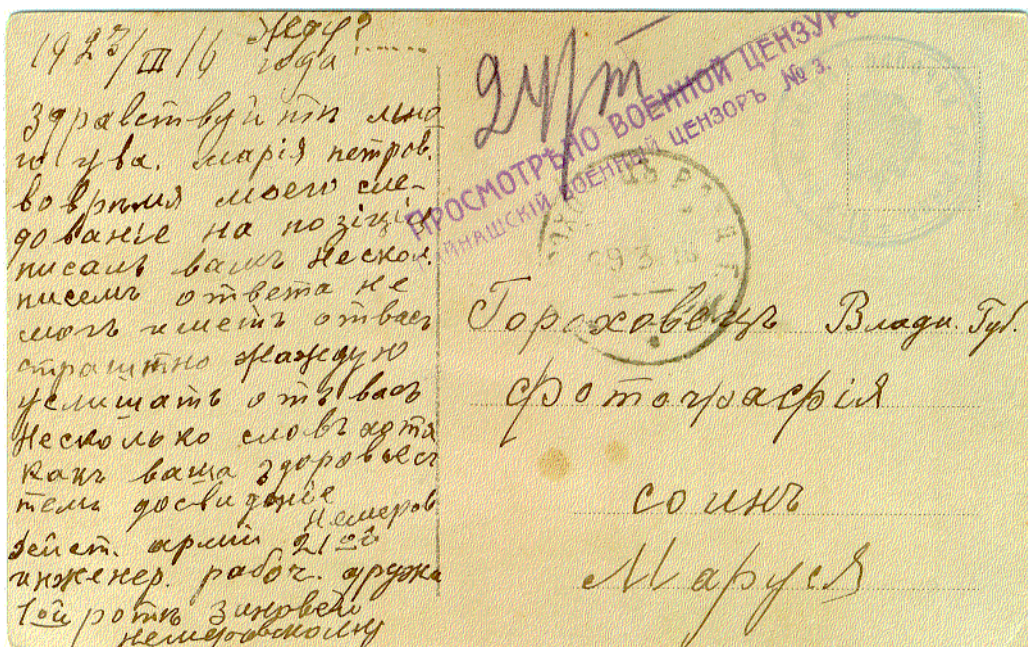 19 23/III 16 года
Жду?
Здравствуйти мно
го ува. марія петров.
во время моего сле-
дованіе на позіціи
писалъ вамъ нескол.
писемъ ответа не
могъ иметь отвасъ
страшно жажду
услишать отъ васъ
несколько словъ хотя
какъ ваша здоровье с
темъ досвиданіе
Дейст. армии 21ой
инженер. рабоч. дружи
1ой роти
ПРОСМОТРѢНО ВОЕННОЙ ЦЕНЗУРО
ВОЕННЫЙ ЦЕНЗОРЪ № 3.
Гороховецъ Влади. Губ.
фотографія
соинъ
Маруся